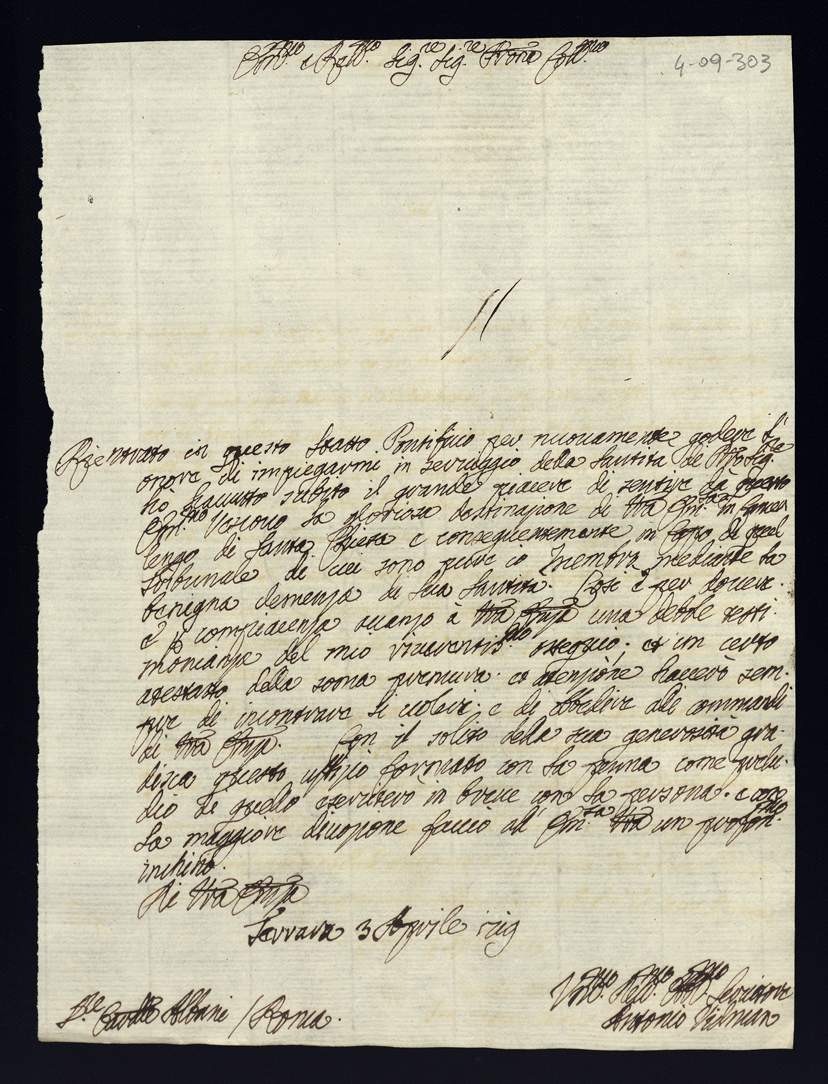 Em.mo e Rev.mo Sig.re Sig.re Pron Col.mo
4-09-303
Rientrato in questo Stato Pontificio per nuovamente godere l'
onore di impiegarmi in servizio della Santità di
hò havuto subito il grande piacere di sentire da questo
Em.mo la gloriosa destinazione di Vra Em.za in
lengo di Santa Chiesa e conseguentemente in Capo di quel
Tribunale di cui sono pure io Membro mediante la
benigna clemenza di Sua Santità. per dovere
e p compiacenza avanzo à Vra Emza una debole testi
monianza del mio ossequio; et un certo
atestato della soma premura et atenzione haverò sem-
pre di incontrare li voleri e di obbedire alli commandi
di Vra Emza. Con il solito della sua generosità gra-
disca questo ufizio formato con la penna come prelu-
dio di quello eserciterò in breve con la persona. e con
la maggiore divozione faccio all' Em.za Vra un profon.mo
inchino.
Di Vra Emza
Ferrara 3 Aprile 1719
Albani / Roma.
Servitore
Antonio Vidman